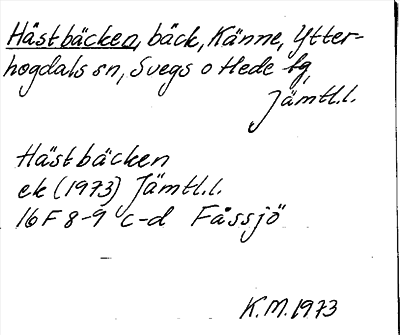 Hästbäcken, bäck, Känne, Ytter-
hogdals sn, Svegs o Hede tg,
Jämtl.l.
Hästbäcken
ek (1973) Jämtl.l.
16 F 8-9 c-d Fåssjö
K.M. 1973